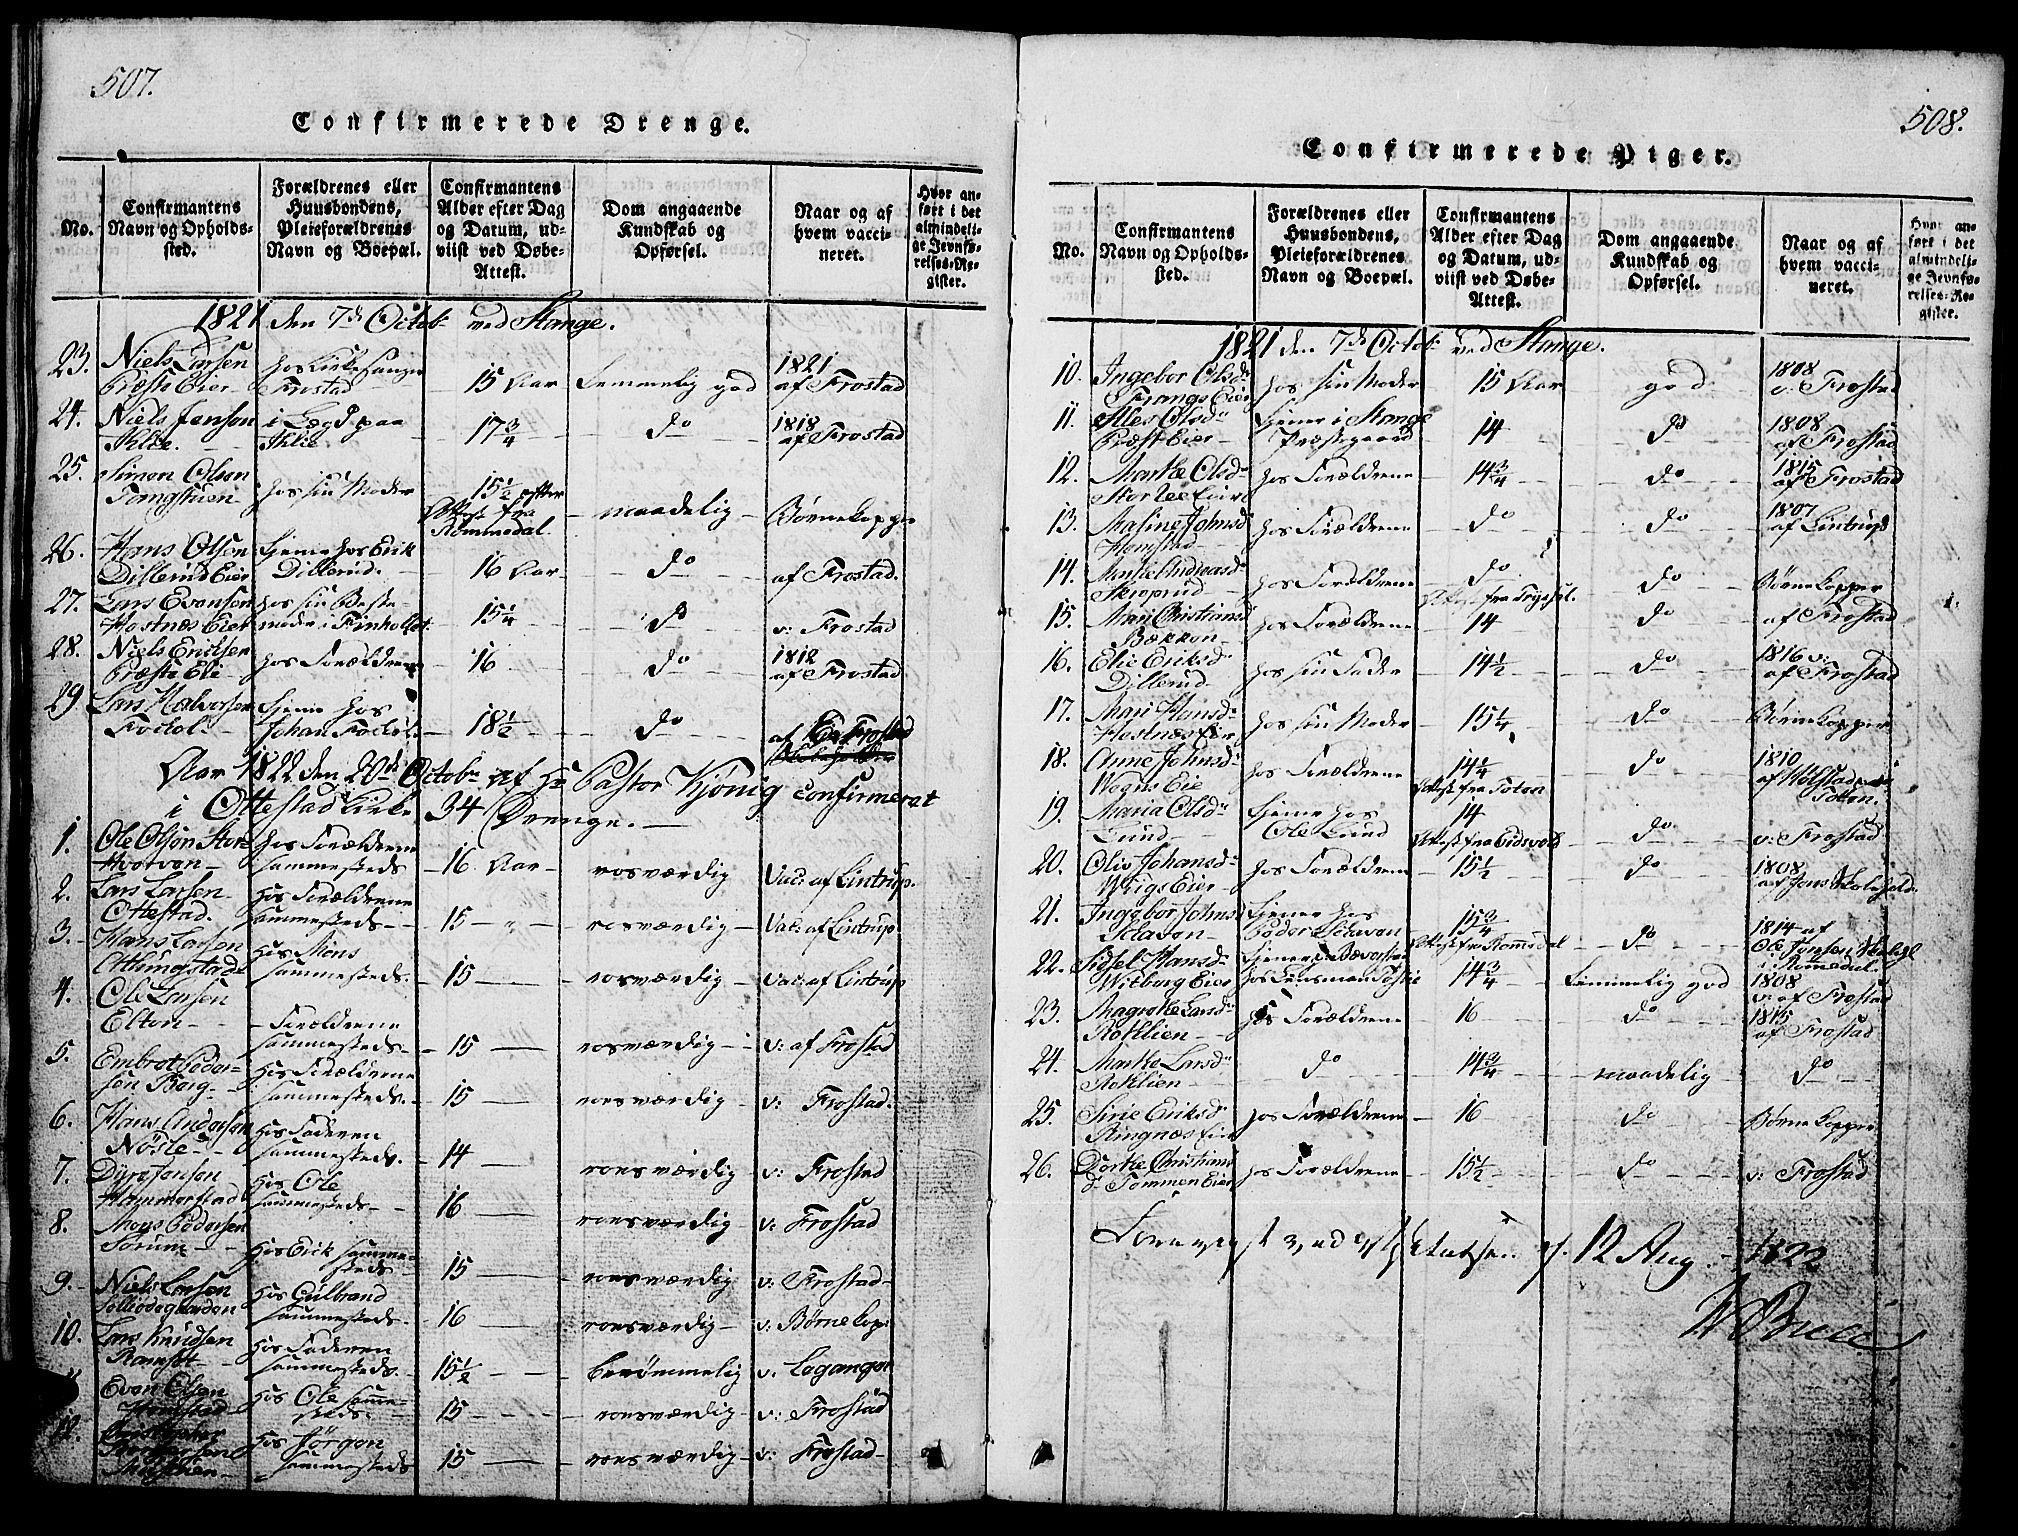 507.
Confirmerede Drenge.
No.
Confirmantens
Navn og Opholds-
sted.
Forældrenes eller
Huusbondens,
Pleieforældrenes
Navn og Boepæl.
Confirmantens
Alder efter Dag
og Datum, ud-
viist ved Døbe-
Attest.
Dom angaaende
Kundskab og
Opførsel.
Naar og af
hvem vacci-
neret.
Hvor an-
ført i det
almindeli-
ge Jevnfø-
relses-Re-
gister.
1821 den 7de Octob. ved Stange.
23. Niels Larsen
Præste Eier
hos Kirkesanger
Frostad
15 Aar
temmelig god
1821
af Frostad
24. Niels Jensen
i Lægd paa
17 3/4
do
1818
af Frostad
25. Simon Olsen
hos sin Moder
15 1/2 efter
Attest fra
Rommedal
maadelig
Børnekopper
26. Hans Olsen
Dillerud Eier
tjener hos Erik
Dillerud.
16 Aar
do
af Frostad.
27. Lars Evensen
Hostnæs Eier
hos sin Beste-
moder i
15 1/4
do
v: Frostad
28. Niels Eriksen
Præste Eie
hos Forældrene
16
do
1812
af Frostad
29 Lars Halvorsen
Fockol
tjener hos
Johan Fockol
18 1/2
do
af Frostad
Aar 1822 den 20de Octobr af Hr Pastor Kjønig confirmerat
i Ottestad Kirke 34 Drenge.
1. Ole Olsen Store
hos Forældrene
sammesteds
16 Aar
rosværdig
Vac: af Lintrup.
2. Lars Larsen
Ottestad.
hos Forældrene
sammesteds
15
rosværdig
Vac: af Lintrup
3. Hans Larsen
hos Mons
sammesteds
15
rosværdig
Vac: af Lintrup
4. Ole Larsen
Elton
Forældrene
sammesteds
15
rosværdig
v: af Frostad
5. Embret Peder-
sen Berg
hos Forældrene
sammesteds
15
roesværdig
v: Frostad.
6. Hans Andersen
Nøsle
hos Faderen
sammesteds.
14
roesværdig
v: Frostad
7. Dyre Jensen
Hammerstad
hos Ole
sammesteds
16
roesværdig
v: Frostad
8. Mons Pedersen
Sørum
hos Erick samme-
steds
15
roesværdig
v: Frostad
9. Niels Larsen
hos Gulbrand
sammesteds
16
roesværdig
v: Børnekop:
10. Lars Knudsen
Ramset
hos Faderen
sammesteds.
15 1/2
berømmelig
v. Legangen
Even Olsen
hos Ole samme-
steds
15
roesværdig
v: Frostad
12.
hos Jørgen
sammesteds
15
roesværdig
v: Frostad
508.
Confirmerede Piger.
No.
Confirmantens
Navn og Opholds-
sted.
Forældrenes eller
Huusbondens,
Pleieforældrenes
Navn og Boepæl.
Confirmantens
Alder efter Dag
og Datum, ud-
viist ved Døbe-
Attest.
Dom angaaende
Kundskab og
Opførsel.
Naar og af
hvem vacci-
neret.
Hvor an-
ført i det
almindeli-
ge Jevnfø-
relses-Re-
gister.
1821 den 7de Octob. ved Stange.
10. Ingebor Olsdr
Frangs Eier
hos sin Moder
15 Aar
god
1808
v: Frostad
11. Olsdr
Præst Eier
tjener i Stange
Præstegaard
14
do
1808
af Frostad
12. Marthe Olsdr
hos Forældrene
14 3/4
do
1815
af Frostad
13. Johnsd
Homstad
hos Forældrene
do
do
1807
af Lintrup
14. Marthe Andreasd
Skreprud
hos Forældrene
do
Attest fra Trysil.
do
Børnekopper
15. Mari Christiansd
Bækken
hos Forældrene
14
do
af Frostad
16. Elie Eriksd
Dillerud
hos sin Fader
14 1/2
do
1816 v:
af Frostad
17. Mari Hansdr
Hostnæs Eie
hos sin Moder
15 1/4
do
Børnekopper
18. Anne Johnsdr
Wogns Eie
hos Forældrene
14 1/4
Attest fra Toten
do
1810
af
Toten.
19. Maria Olsdr
Lund
tjener hos
Ole Lund
14
Attest fra Eidsvold
do
v: Frostad
20. Oliv Johansdr
Wriigs Eier
hos Forældrene
15 1/2
do
1808
af Jens Skoleholder
21. Ingebor Johnsd
Sclaven
tjener hos
Peder Sclaven
15 3/4
Attest fra Romedal
do
1814 af
Ole Jensen Skolehl
i Romedal.
22. Sidsel Hansdr
Witberg Eier
tjener
hos Lensmand
14 3/4
temmelig god
1808
v: af Frostad
23. Magrethe Larsdr
Rotlien
hos Forældrene
16
do
1815
af Frostad
24. Marthe Larsdr
Rotlien
do
14 3/4
maadelig
do
25. Sirie Eriksd
Ringnæs Eier
hos Forældrene
16
do
Børnekopper
26. Dorthe Christians
dr Tommen Eier
hos Forældrene
15 1/2
do
v: Frostad
Foreviist ved Visitatsen d. 12 Aug. 1822